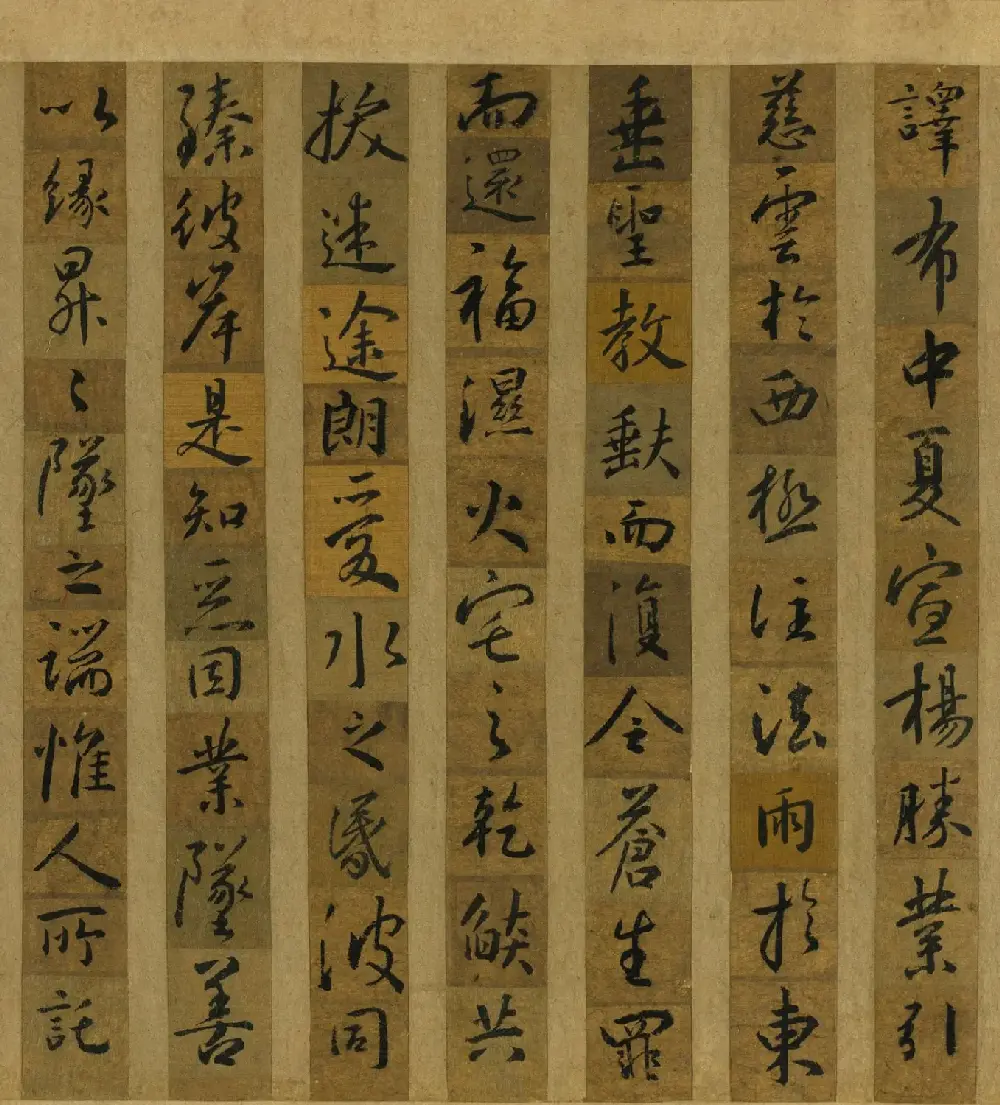 譯布中夏宣楊勝業引
慈雲於西極注法雨於東
垂聖教缺而復全蒼生罪
而還福濕火宅之乾燄共
拔迷途朗愛水之昬波同
臻彼岸是知惡因業墜善
以緣昇〻墜之端惟人所託